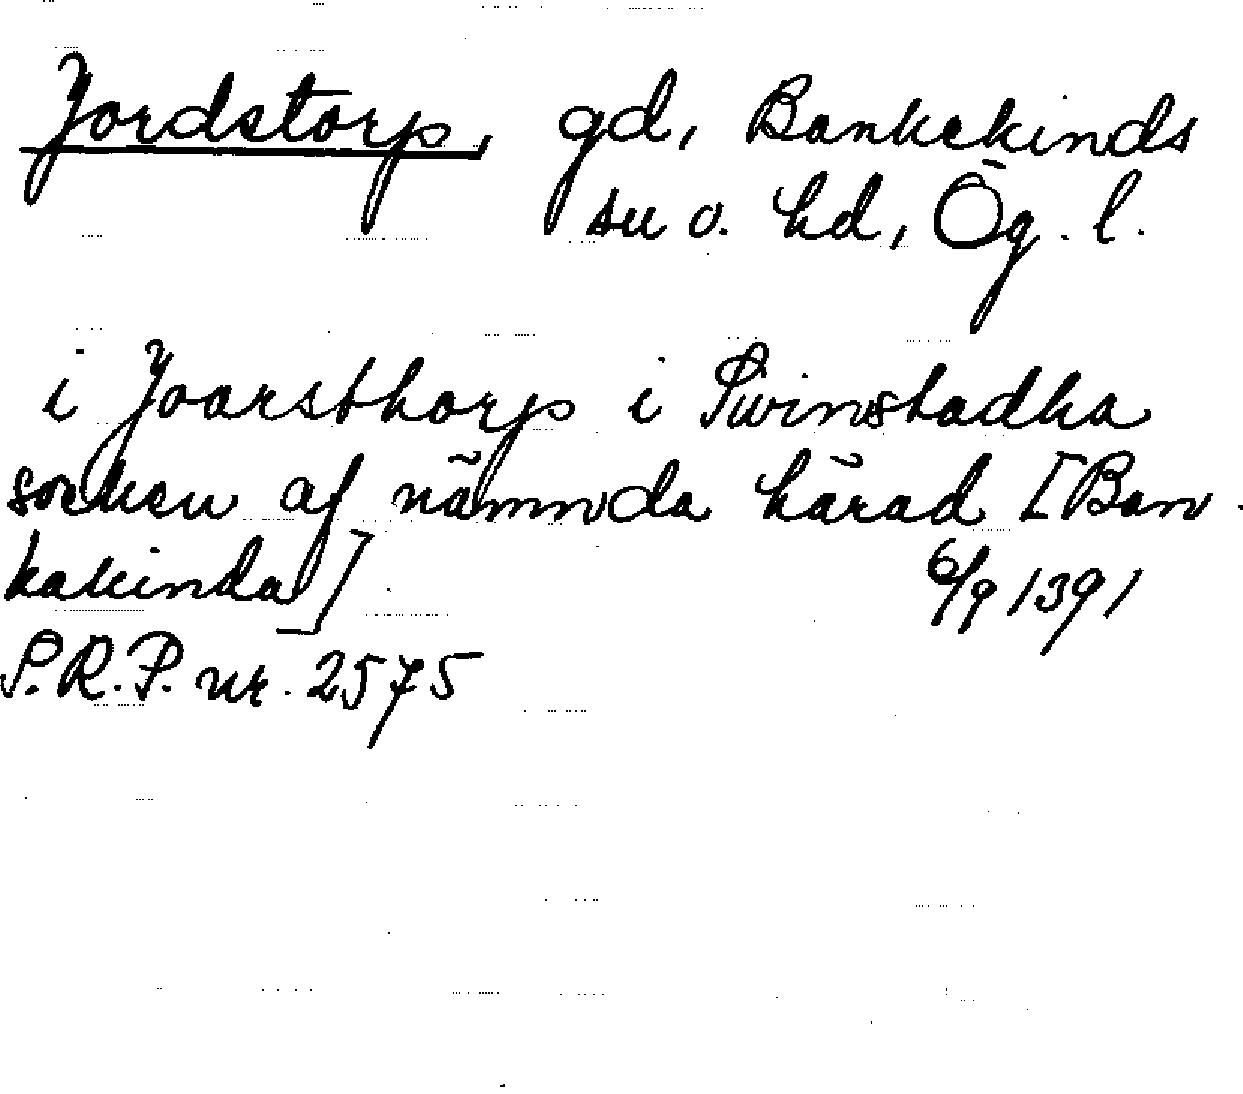 Jordstorp, gd, Bankekinds
su o. hd, Ög. l.
i Joarsthorp i Swinstadha
socken af nämnda härad [Ban-
kakinda] 6/9 1391
S.R.P. nr. 2575